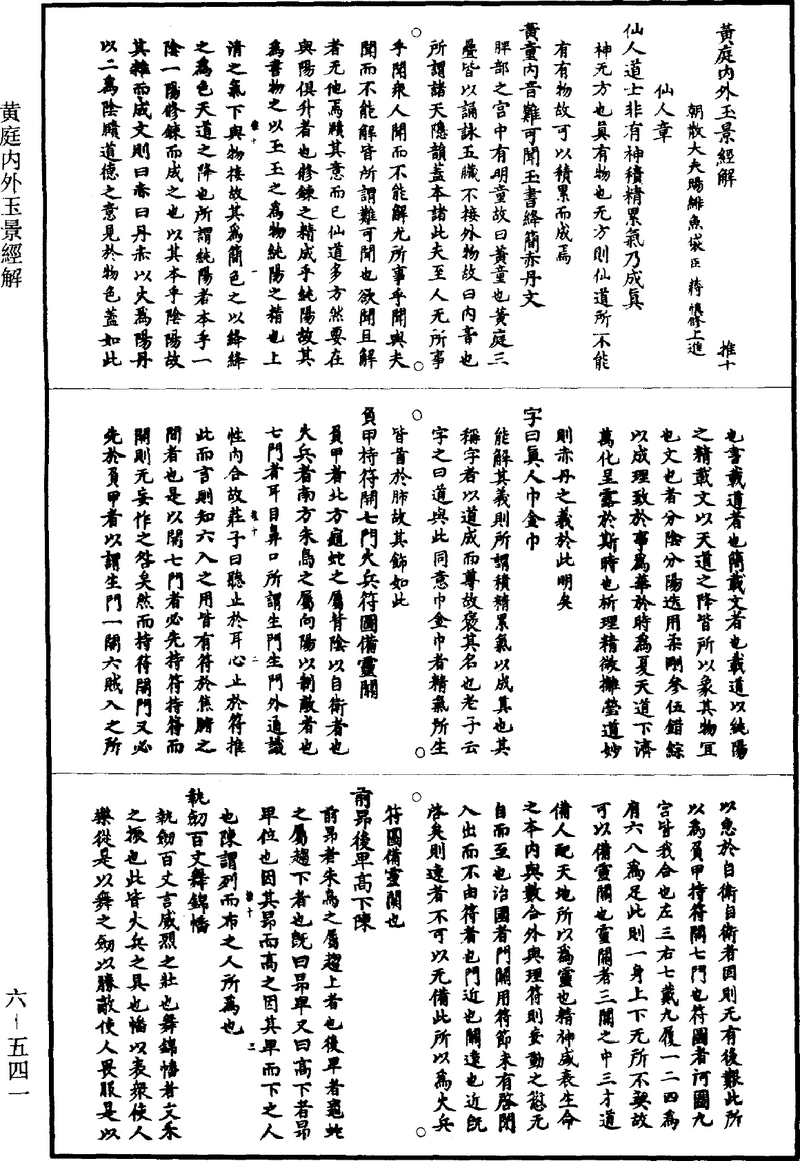 黃庭内外玉景經解
黃庭内外玉景經解　推十
朝散大夫賜緋魚袋臣蔣慎修上進
仙人章
仙人道士非有神積精累氣乃成真
神无方也真有物也无方則仙道所不能
有有物故可以積累而成焉
黃童内音難可聞玉書絳簡赤丹文
脾部之宮中有明童故曰黃童也黃庭三
疊皆以誦詠五臟不接外物故曰内音也
所謂諸天隱韻蓋本諸此夫至人无所事
乎聞衆人聞而不能解尤所事乎聞與夫
聞而不能解皆所謂難可聞也欲聞且解
者无他焉賾其意而已仙道多方然要在
與陽俱升者也修鍊之精成乎純陽故其
為書物之以玉玉之為物純陽之精也上
清之氣下與物接故其為簡色之以絳絳
之為色天道之降也所謂純陽者本乎一
陰一陽修鍊而成之也以其本乎陰陽故
其雜而成文則曰赤曰丹赤以火為陽丹
以二為陰賾道德之意見於物色蓋如此
也書載道者也簡載文者也載道以純陽
之精載文以天道之降皆所以象其物宜
也文也者分陰分陽迭用柔剛參伍錯綜
以成理致於事為華於時為夏天道下濟
萬化呈露於斯時也析理精微攡瑩道妙
則赤丹之義於此明矣
字曰真人巾金巾
能解其義則所謂積精累氣以成真也其
稱字者以道成而尊故褒其名也老子云
字之曰道與此同意巾金巾者精氣所生
皆首於肺故其飾如此
負甲持符開七門火兵符圖備靈關
負甲者北方龜蛇之屬背陰以自衛者也
火兵者南方朱鳥之屬向陽以制敵者也
七門者耳目鼻口所謂生門生門外通識
性内合故莊子曰聽止於耳心止於符推
此而言則知六入之用皆有符於焦腑之
間者也是以開七門者必先持符持符而
開則无妄作之咎矣然而持符開門又必
先於負甲者以謂生門一闢六賊入之所
以急於自衛自衛者固則无有後艱此所
以為負甲持符開七門也符圖者河圖九
宮皆我合也左三右七戴九履一二四為
肩六八為足此則一身上下无所不契故
可以備靈關也靈關者三關之中三才道
備人配天地所以為靈也精神盛衰生命
之本内與數合外與理符則妄動之慾无
自而至也治國者門關用符節未有啓閉
入出而不由符者也門近也關遠也近既
啓矣則遠者不可以无備此所以為火兵
符圖備靈關也
前昂後卑高下陳
前昂者朱鳥之屬趯上者也後卑者龜蛇
之屬趨下者也既曰昂卑又曰高下者昂
卑位也因其昂而高之因其卑而下之人
也陳謂列而布之人所為也
執劒百丈舞錦幡
執劒百丈言威烈之壯也舞錦幡者文采
之振也此皆火兵之具也幡以表衆使人
樂從是以舞之劒以勝敵使人畏服是以
六－五四一